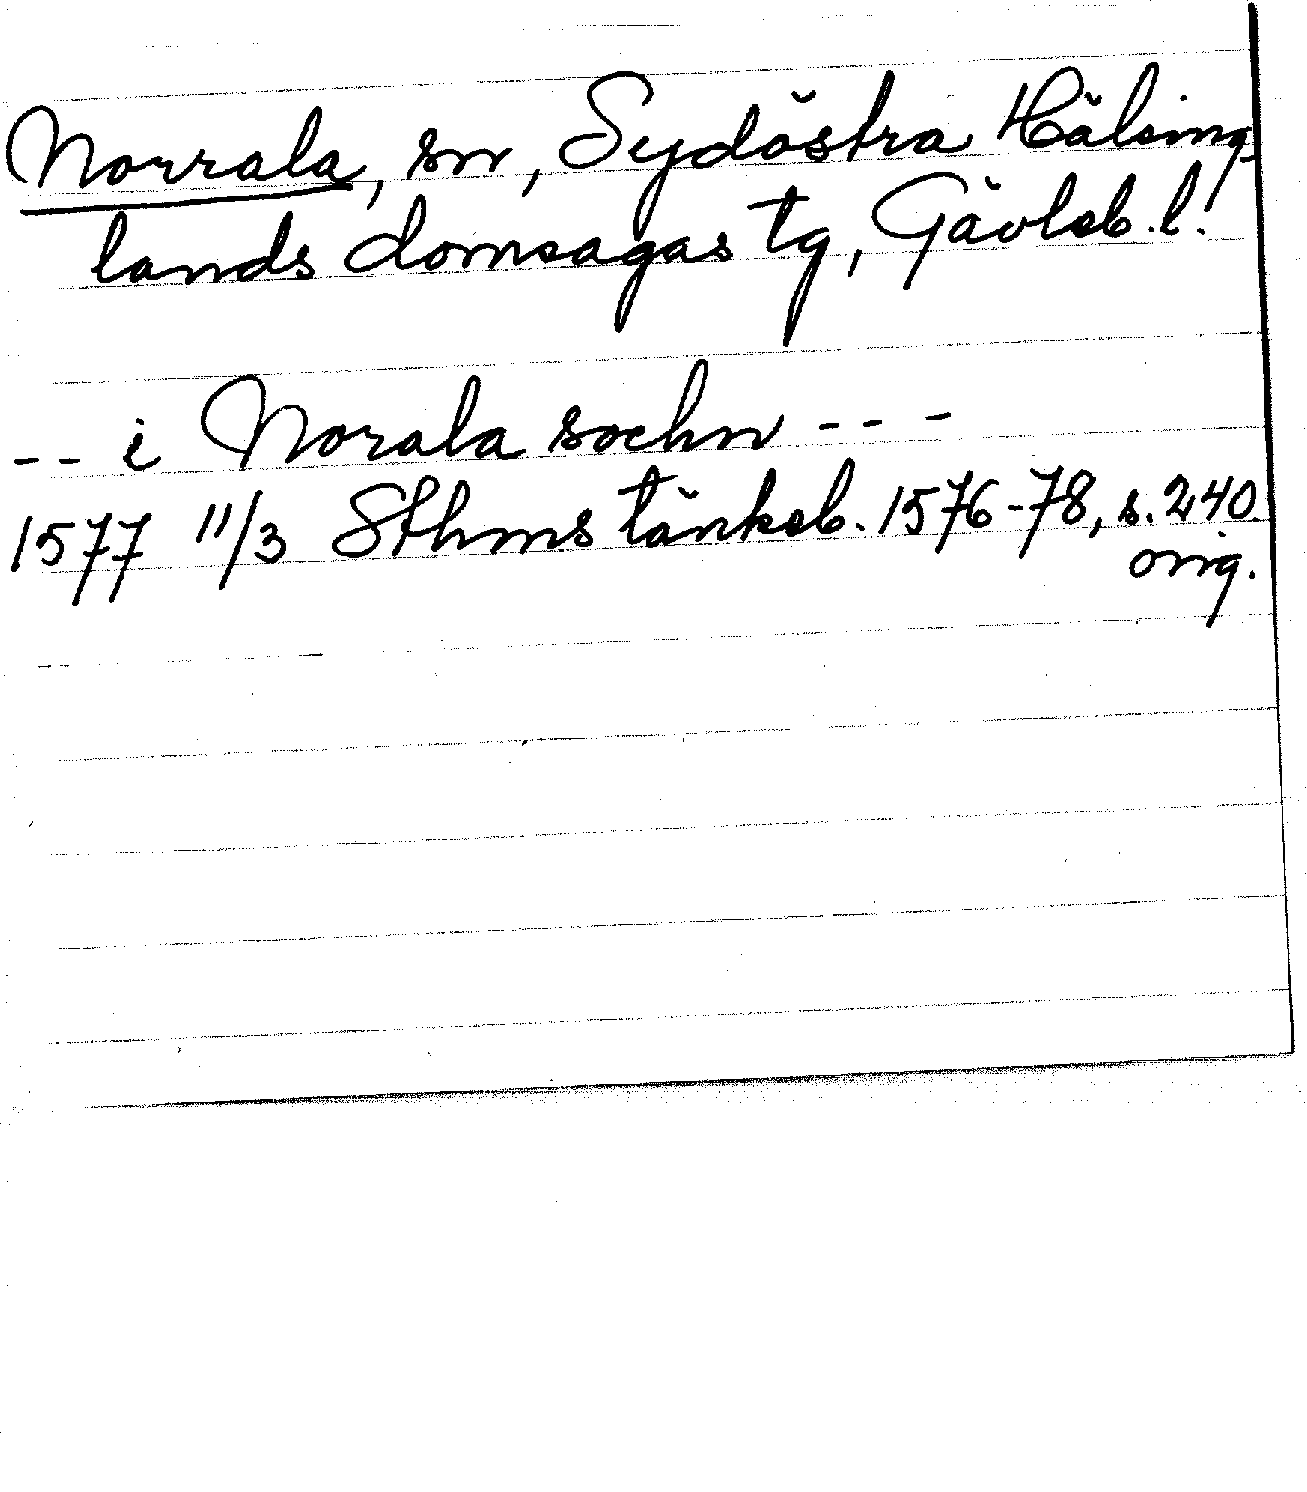 Norrala, sn, Sydöstra Hälsing-
lands domsagas tg, Gävleb. l.
-- i Norala sochn ---
1577 11/3 Sthms tänkeb. 1576-78, s. 240.
orig.